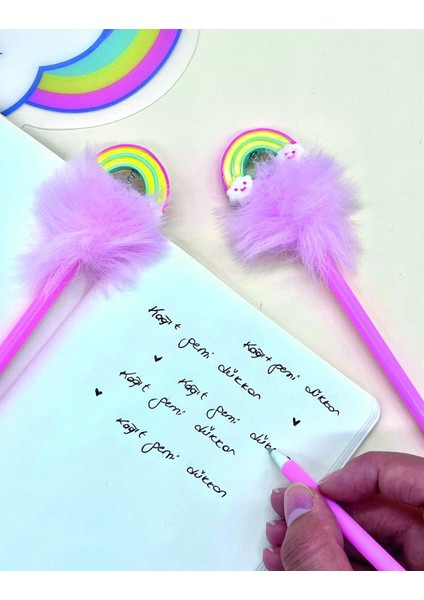 Kağıt gemi dükkan
Kağıt gemi dükkan
Kağıt gemi dükkan
Kağıt gemi dük
Kağıt gemi dükkan